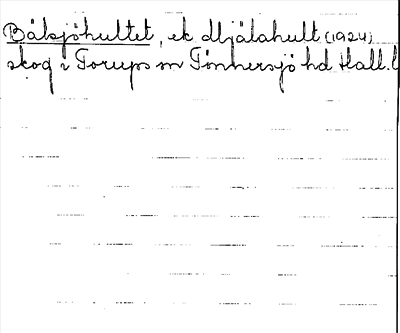 Båksjöhultet, ek Mjälahult (1924)
skog i Torups sn Tönnersjö hd. Hall. l